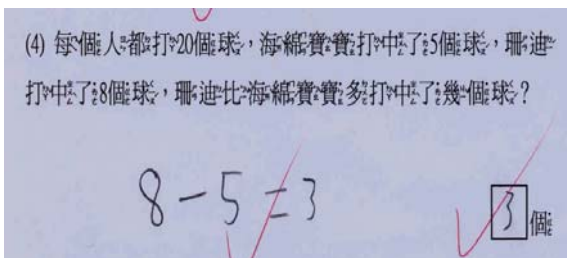 (4) 每個人都打20個球，海綿寶寶打中了5個球，珊迪
打中了8個球，珊迪比海綿寶寶多打中了幾個球？
8-5=3
3個